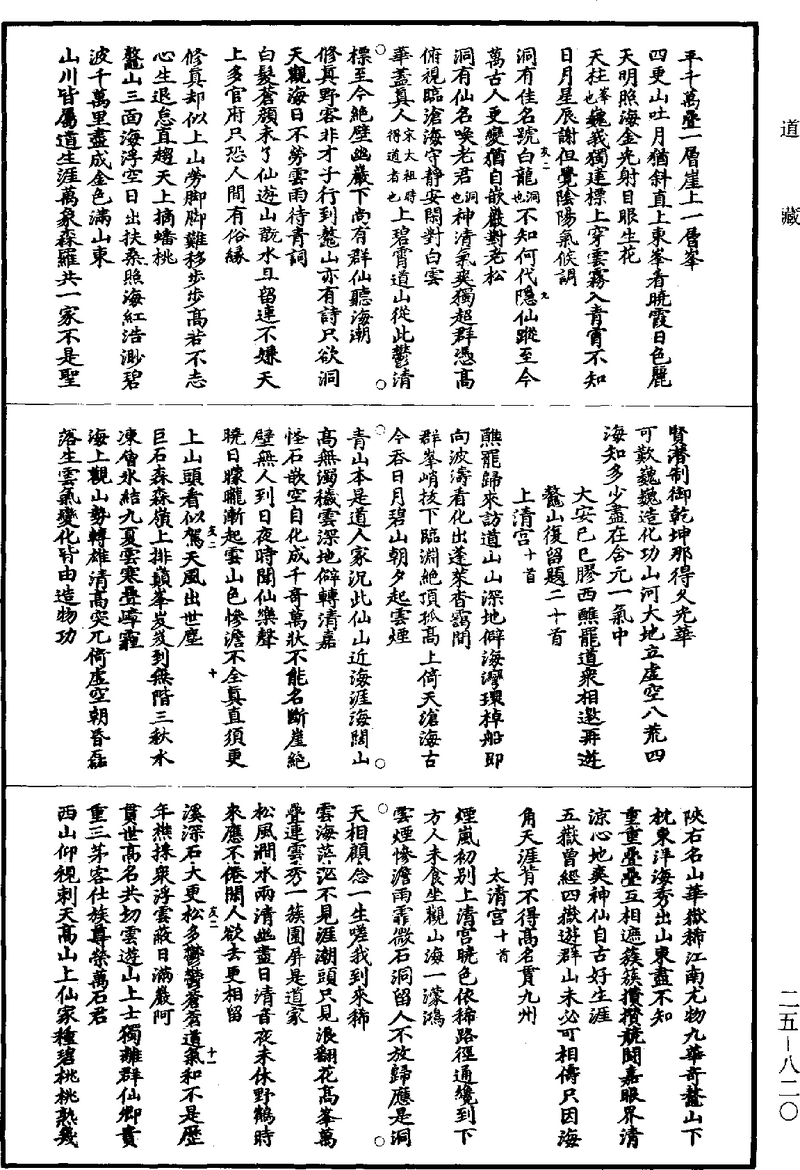 道藏
平千萬疊一層崖上一層峯
四更山吐月猶斜直上東峯看曉霞日色麗
天明照海金光射目眼生花
天柱峯也巍峩獨建標上穿雲霧入青霄不知
日月星辰謝但覺陰陽氣候調
洞有佳名號白龍洞也不知何代隱仙蹤至今
萬古人更變猶自嵌巖對老松
洞有仙名喚老君洞也神清氣爽獨超群憑高
俯視臨滄海守静安閑對白雲
華蓋真人宋太祖時得道者也上碧霄道山從此鬱清
標至今絶壁幽巖下尚有群仙聽海潮
修真野客非才子行到鼇山亦有詩只欲洞
天觀海日不勞雲雨待青詞
白髮蒼顔未了仙遊山翫水且留連不嫌天
上多官府只恐人間有俗縁
修真却似上山勞脚脚難移步步高若不志
心生退怠直趨天上摘蟠桃
鼇山三面海浮空日出扶桑照海紅浩渺碧
波千萬里盡成金色滿山東
山川皆屬道生涯萬象森羅共一家不是聖
賢潜制御乾坤那得久光華
可歎巍巍造化功山河大地立虚空八荒四
海知多少盡在含元一氣中
大安己巳膠西醮罷道衆相邀再遊
鼇山復留題二十首
上清宫十首
醮罷歸來訪道山山深地僻海灣環棹船即
向波濤看化出蓬萊杳靄間
群峯峭拔下臨淵絶頂孤高上倚天滄海古
今吞日月碧山朝夕起雲煙
青山本是道人家況此仙山近海涯海闊山
高無濁穢雲深地僻轉清嘉
怪石嵌空自化成千奇萬狀不能名斷崖絶
壁無人到日夜時聞仙樂聲
曉日朦朧漸起雲山色慘澹不全真直須更
上山頭看似駕天風出世塵
巨石森森嶺上排巔峯岌岌到無階三秋水
凍曾氷結九夏雲寒疊嶂霾
海上觀山勢轉雄清高突兀倚虚空朝昏磊
落生雲氣變化皆由造物功
陜右名山華嶽稀江南尤物九華奇鼇山下
枕東洋海秀出山東盡不知
重重疊疊互相遮簇簇攢攢競鬭嘉眼界清
涼心地爽神仙自古好生涯
五嶽曾經四嶽遊群山未必可相儔只因海
角天涯背不得高名貫九州
太清宫十首
煙嵐初别上清宫曉色依稀路徑通纔到下
方人未食坐觀山海一濛鴻
雲煙慘澹雨霏微石洞留人不放歸應是洞
天相顧念一生嗟我到來稀
雲海茫茫不見涯潮頭只見浪翻花高峯萬
疊連雲秀一簇圍屏是道家
松風澗水兩清幽盡日清音夜未休野鶴時
來應不倦閑人欲去更相留
溪深石大更松多鬱鬱蒼蒼道氣和不是歷
年樵採衆浮雲蔽日滿巖阿
貫世高名共切雲遊山上士獨離群仙鄉貴
重三茅客仕族尊榮萬石君
西山仰視刺天高山上仙家種碧桃桃熟幾
二五—八二〇